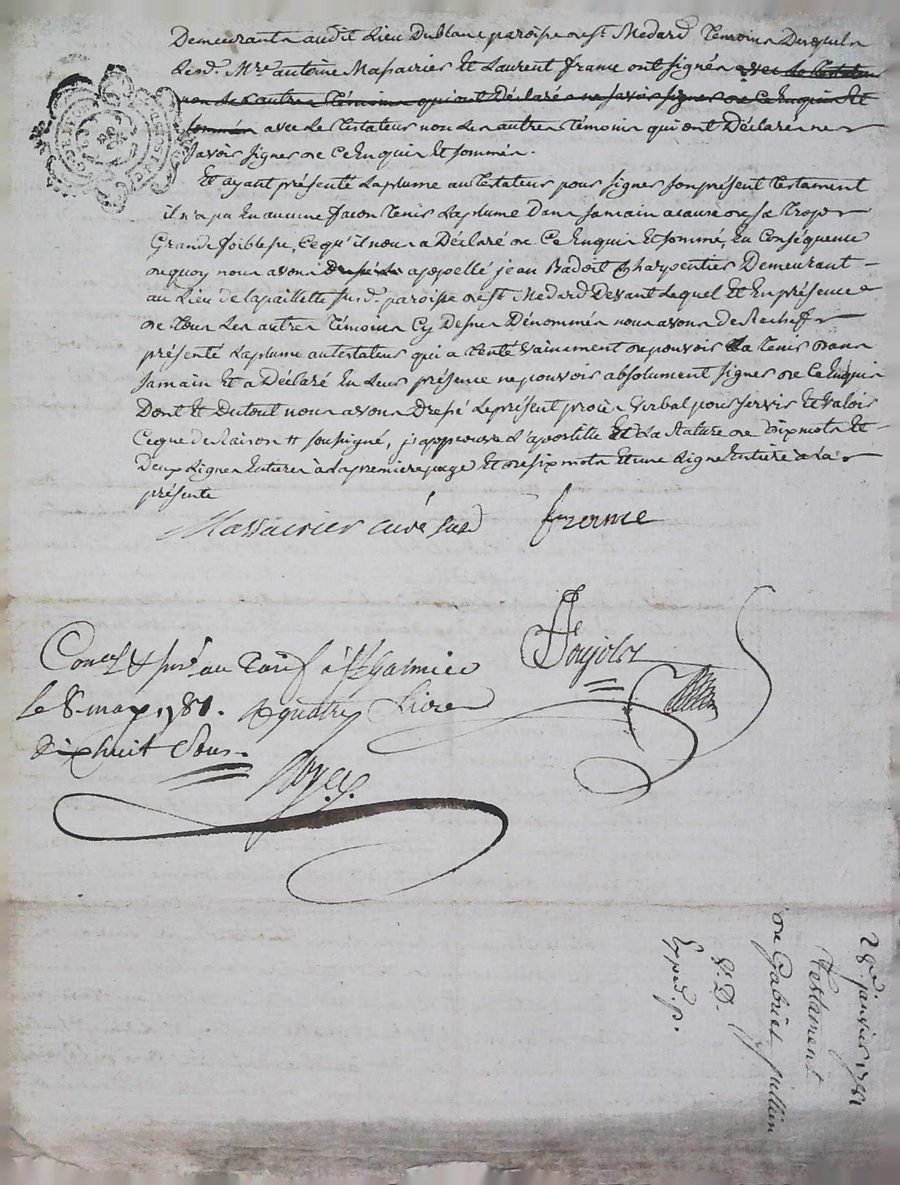 Demeurants audit Lieu Dublanc paroisse de st. Medard Temoins Desquels
Lesd. Mre. antoine Massacrier Et Laurent france ont signés avec le testateur
non les autres Témoins qui ont Déclarés ne savoir signer de Ce Enquis Et
sommés avec Le Testateur non Les autres Témoins qui ont Déclarés ne
savoir signer de Ce Enquis Et sommés.
Et ayant présenté La plume au testateur pour signer son présent testament
il n'a pu En aucune facon tenir La plume Dans sa main a cause de sa trop
Grande foiblesse, Ce qu'il nous a Déclaré de Ce Enquis Et sommé, En Conséquence
de quoy nous avons appellé jean Badoit Charpentier Demeurant
au Lieu de la paillette susd. paroisse de st. Medard Devant Lequel Et En présence
de tous Les autres témoins Cy Dessus Dénommés nous avons de Rechef
présenté La plume au testateur qui a tenté vainement de pouvoir La tenir dans
sa main Et a Déclaré En Leur présence ne pouvoir absolument signer de Ce Enquis
Dont Et Dutout nous avons Dressé Le présent procès verbal pour servir Et valoir
Ce que de Raison # soussigné, j'approuve L'apostille Et La Rature de dix mots Et
Deux Lignes Entieres à La premiere page Et de six mots Et une Ligne Entiere à La
présente
Massacrier curé susd
france
Coner. & insé. au tarif à St Galmier
le 8 may 1781. R quatre Livres
dix huit Sous
28e. janvier 1781
Testament
de Gabriel jullien
S. D.
Exped. p.